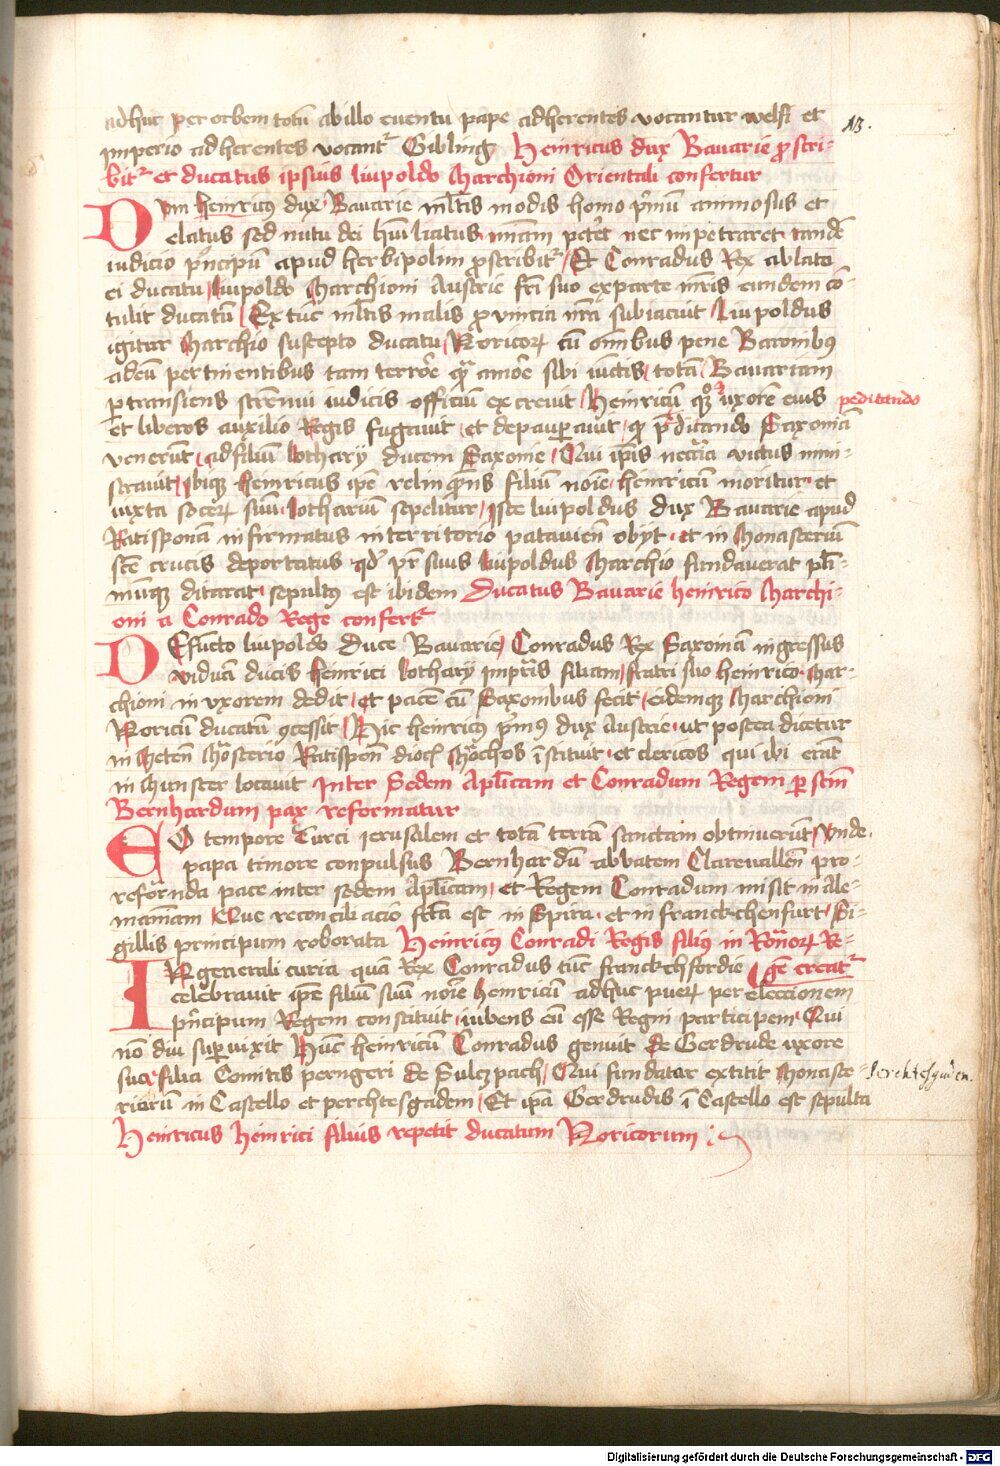 adhuc per orbem totū ab illo euentu pape adherentes vocantur welfi et
imperio adherentes vocant᷑ Gibling Heinricus dux Bauarie ꝓscri-
bit᷑ et ducatus ipsius liupoldo Marchioni Orientali confertur
NB.
DVm heinricꝰ dux Bauarie ml̄tis modis homo pͥmū animosus et
elatus sed nutu dei hūiliatus miām peteret nec impetraret tandē
iudicio pͥncipū apud herbipolim ꝓscribit᷑ Et Conradus Rex ablato
ei ducatu liupoldo Marchioni Austrie fr̄i suo ex parte mr̄is eundem cō-
tulit ducatū Ex tūc ml̄tis malis ꝓuincia nr̄a subiacuit Liupoldus
igitur Marchio suscepto ducatu Noricoꝝ cū om̄ibus pene Baronibꝰ
ad eū pertinentibus tam terrore qͣ amore sibi iūctis totā Bauariam
ꝑtransiens strennui iudicis officiū excreuit Heinricū qͦꝫ uxorē eius
peditando
et liberos auxilio Regis fugauit et depauꝑauit qͥ pͤditando Saxoniā
venerūt ad filiū lothary ducem Saxonie Qui ip̄is necc̄aria victus mini-
strauit ibiqꝫ heinricus ip̄e relinquens filiū noīe heinricum moritur et
iuxta soceꝝ suū lotharium sepelitur Iste liupoldus dux Bauarie apud
Ratisponā infirmatus in territorio patauien̄ obyt et in Monasteriū
sc̄e crucis deportatus qd̓ pr̄ suus liupoldus Marchio fundauerat pl̄i-
mumqꝫ ditarat sepultꝰ est ibidem Ducatus Bauarie heinrico Marchi-
oni a Conrado Rege confert᷑
DEfuncto liupoldo duce Bauarie Conradus Rex Saxoniā ingressus
viduā ducis heinrici lothary impr̄is filiam fratri suo heinrico Mar-
chioni in vxorem dedit et pacē cū Saxonibus fecit eidemqꝫ Marchioni
Noricū ducatū ꝯcessit Hic heinricꝰ pͥmꝰ dux Austrie ut postea dicetur
in Meten̄ Mōsterio Ratispon̄ dioc̄ Mōchos īstituit et clericos qui ibi erāt
in Munster locauit Inter Sedem Apl̄icam et Conradum Regem ꝑ sc̄m
Bernhardum pax reformatur
EO tempore Turci ierusalem et totā terrā sanctam obtinuerūt Vnde
papa timore conpulsus Bernhardū abbatem Clareuallen̄ pro-
reformnda pace inter sedem Apl̄icam et Regem Conradum misit in Ale-
maniam Que reconciliacio fc̄ta est in Spira et in franckchenfurt Si-
gillis principum roborata Heinricꝰ Conradi Regis filiꝰ in Ro̅noꝝ Re-
IN generali curia quā Rex Conradus tūc franckchfordie gē creat᷑
celebrauit ip̄e filiū suū noīe heinricū adhuc pueꝝ per eleccionem
pͥncipum Regem constituit iubens eū esse Regni participem Qui
nō diu suꝑuixit Hūc heinricū Conradus genuit de Gerdrude uxore
sua filia Comitis perngeri de Sulczpach Qui fundator extitit Monaste-
Berchtesgaden.
riorū in Castello et perchtesgadem Et ip̄a Gerdrudis ī Castello est sepulta
Heinricus Heinrici filius repetit ducatum Noricorum
Digitalisierung gefördert durch die Deutsche Forschungsgemeinschaft - DFG